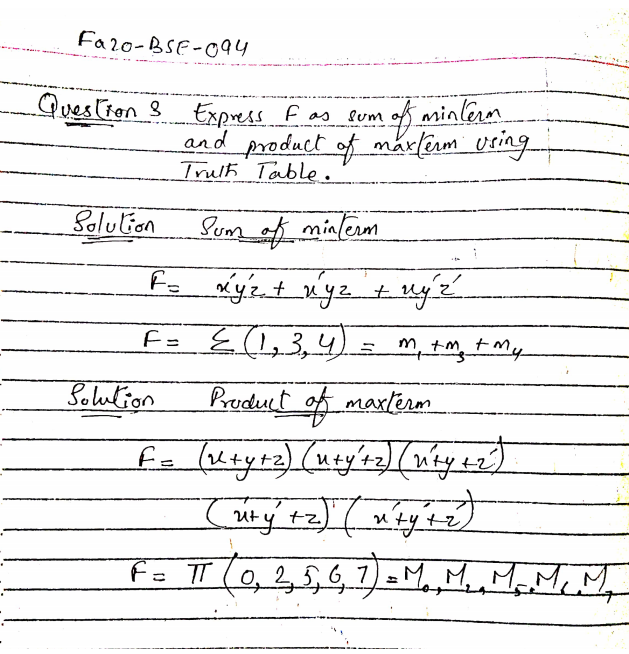 Fa20-BSE-094
Question 3 Express F as sum of minterm
and product of maxterm using
Truth Table.
Solution Sum of minterm
F= x'y'z + x'yz + xy'z'
F= Σ(1, 3, 4) = m₁ + m₃ + m₄
Solution Product of maxterm
F= (x+y+z) (x+y'+z) (x'+y+z')
(x'+y'+z) (x'+y'+z')
F= Π(0, 2, 5, 6, 7) = M₀, M₂, M₅, M₆ M₇